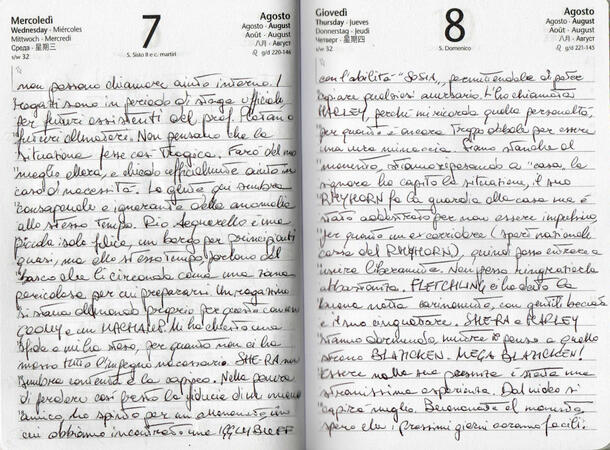 Mercoledì
Wednesday - Miércoles
Mittwoch - Mercredi
Среда - 星期三
s/w 32
7
S. Sisto II e c. martiri
Agosto
Agosto - August
Août - August
八月 - Август
g/d 219-146
non possono chiamare aiuto interno. I
ragazzi sono in periodo di stage ufficiale
per futuri assistenti del prof. Platano o
futuri allenatori. Non pensavo che la
situazione fosse così tragica. Farò del mio
meglio allora, e chiedo ufficialmente aiuto in
caso di necessità. La gente qui sembra
consapevole e ignorante della anomalia
allo stesso tempo. Rio Acquerello è una
piccola isola felice, un borgo per principianti
quasi, ma allo stesso tempo parlano del
bosco che li circonda come una zona
pericolosa per cui prepararsi. Un ragazzino
si stava allenando proprio per questo con un
GOOMY e un MACHOP. Mi ha chiesto una
sfida e mi ha steso, per quanto non ci ho
messo tutto l'impegno necessario. SHE-RA non
sembra contenta e la capisco. Nella paura
di perdere così presto la fiducia di un nuovo
amico, ho spinto per un allenamento in
cui abbiamo incontrato una IGGLYBUFF
Giovedì
Thursday - Jueves
Donnerstag - Jeudi
Четверг - 星期四
s/w 32
8
S. Domenico
Agosto
Agosto - August
Août - August
八月 - Август
g/d 220-145
con l'abilità "SOSIA", permettendole di poter
copiare qualsiasi avversario. L'ho chiamata
HARLEY, perché mi ricorda quella personalità,
per quanto è ancora troppo debole per essere
una vera minaccia. Siamo stanche al
momento, stiamo riposando a "casa, la
signora ha capito la situazione, il suo
RHYHORN fa la guardia alla casa ma è
stato addestrato per non essere impulsivo,
per quanto un ex corridore (sport nazionale
corsa del RHYHORN), quindi posso entrare e
uscire liberamente. Non posso ringraziarla
abbastanza. FLETCHLING ci ha dato la
buona notte carinamente, con gentili beccate
e il suo cinguettare. SHE-RA e HARLEY
stanno dormendo mentre io penso a quello
strano BLAZIKEN. MEGA BLAZIKEN!
Essere nella sua presenza è stata una
stranissima esperienza. Dal video si
capirà meglio. Buonanotte al momento
spero che i prossimi giorni saranno facili.